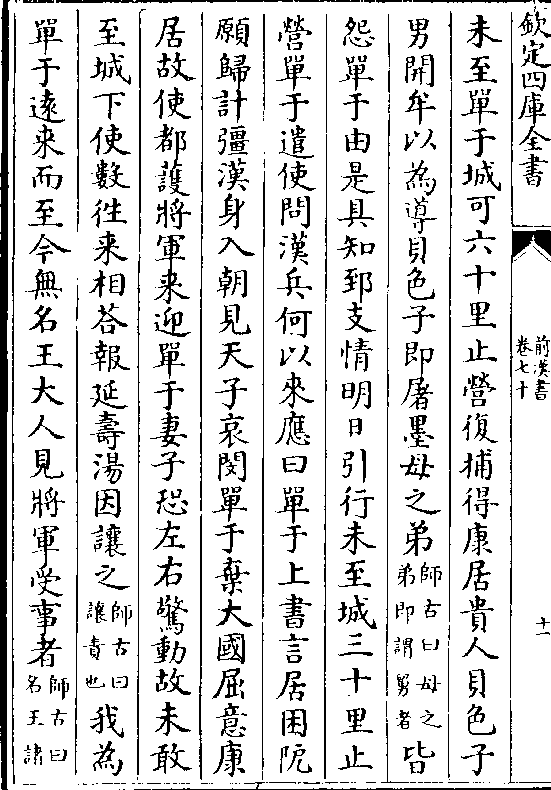 欽定四庫全書
前漢書
卷七十
十一
未至單于城可六十里止營復捕得康居貴人貝色子
男開牟以為導貝色子即屠墨母之弟師古曰母之弟即謂舅者皆
怨單于由是具知郅支情明日引行未至城三十里止
營單于遣使問漢兵何以來應曰單于上書言居困阨
願歸計彊漢身入朝見天子哀閔單于棄大國屈意康
居故使都護將軍來迎單于妻子恐左右驚動故未敢
至城下使數往來相答報延壽湯因讓之師古曰讓責也我為
單于遠來而至今無名王大人見將軍受事者師古曰名王諸